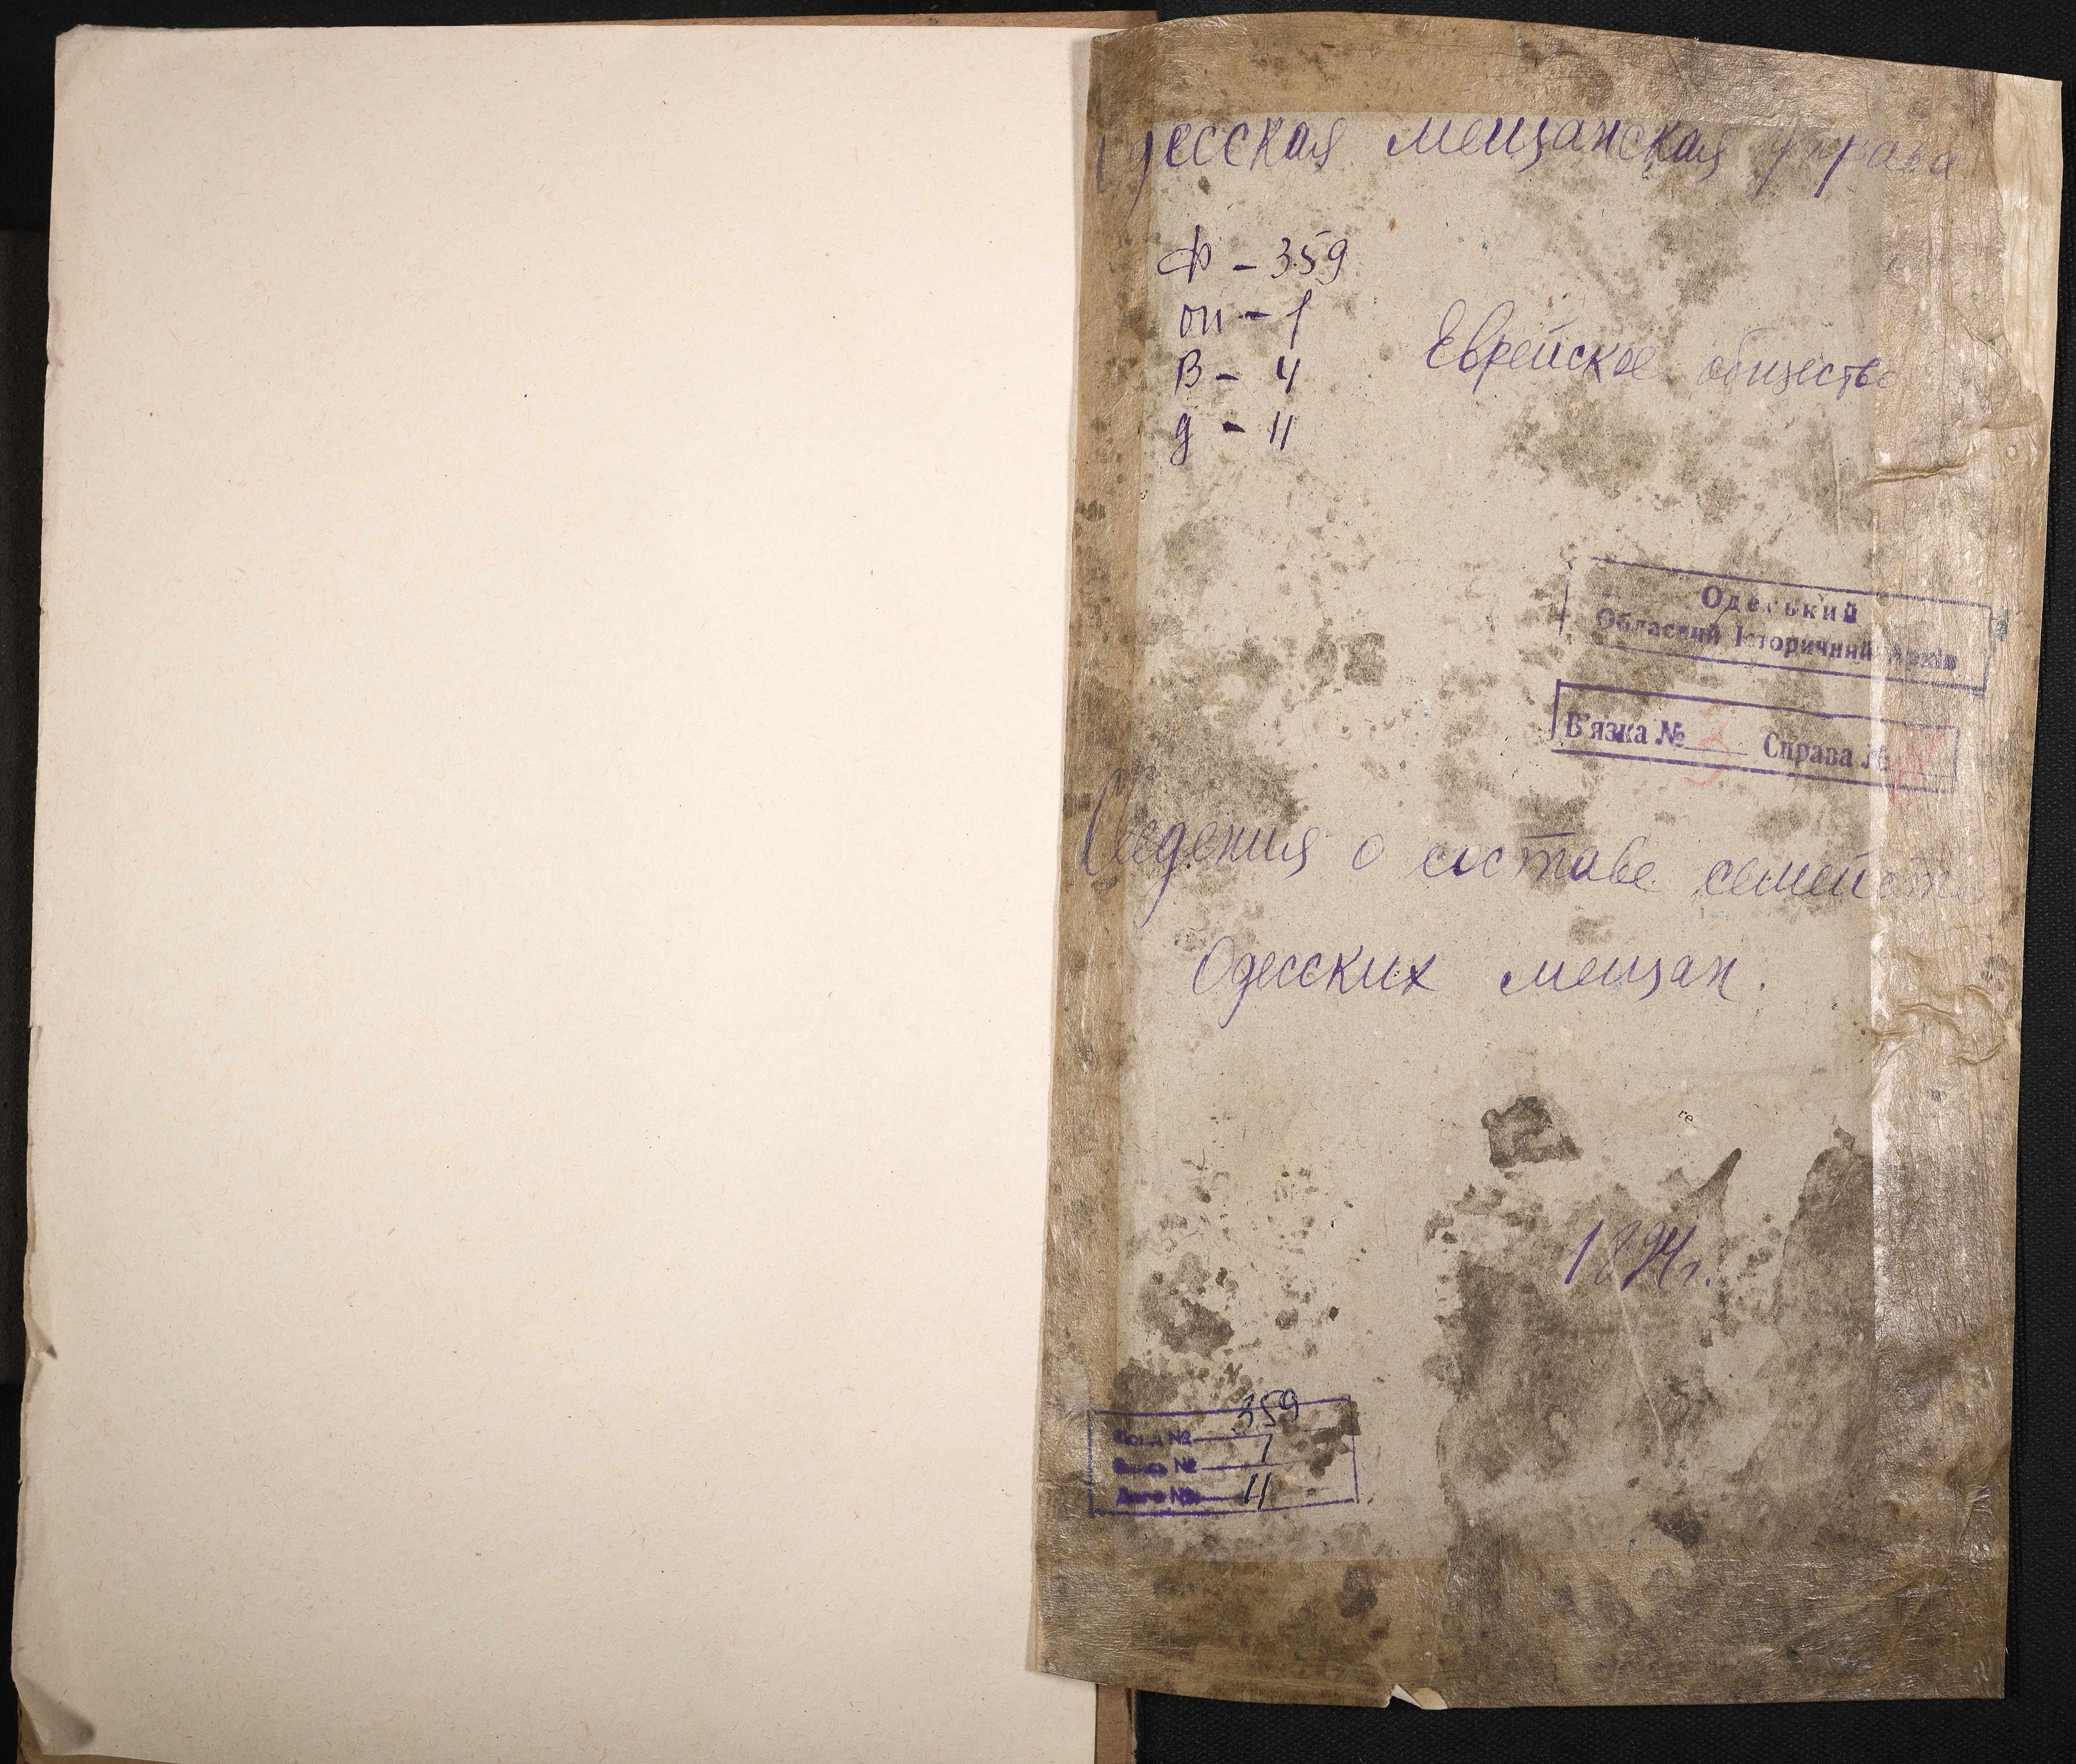 Одесская мещанская управа
Ф - 359
оп - 1
В - 4
д - 11
Еврейское общество
Одеський
Обласний Історичний Архів
В'язка № 3 Справа №
Сведения о составе семейств
Одесских мещан.
1894 г.
359
Фонд №
1
Опись №
11
Дело №